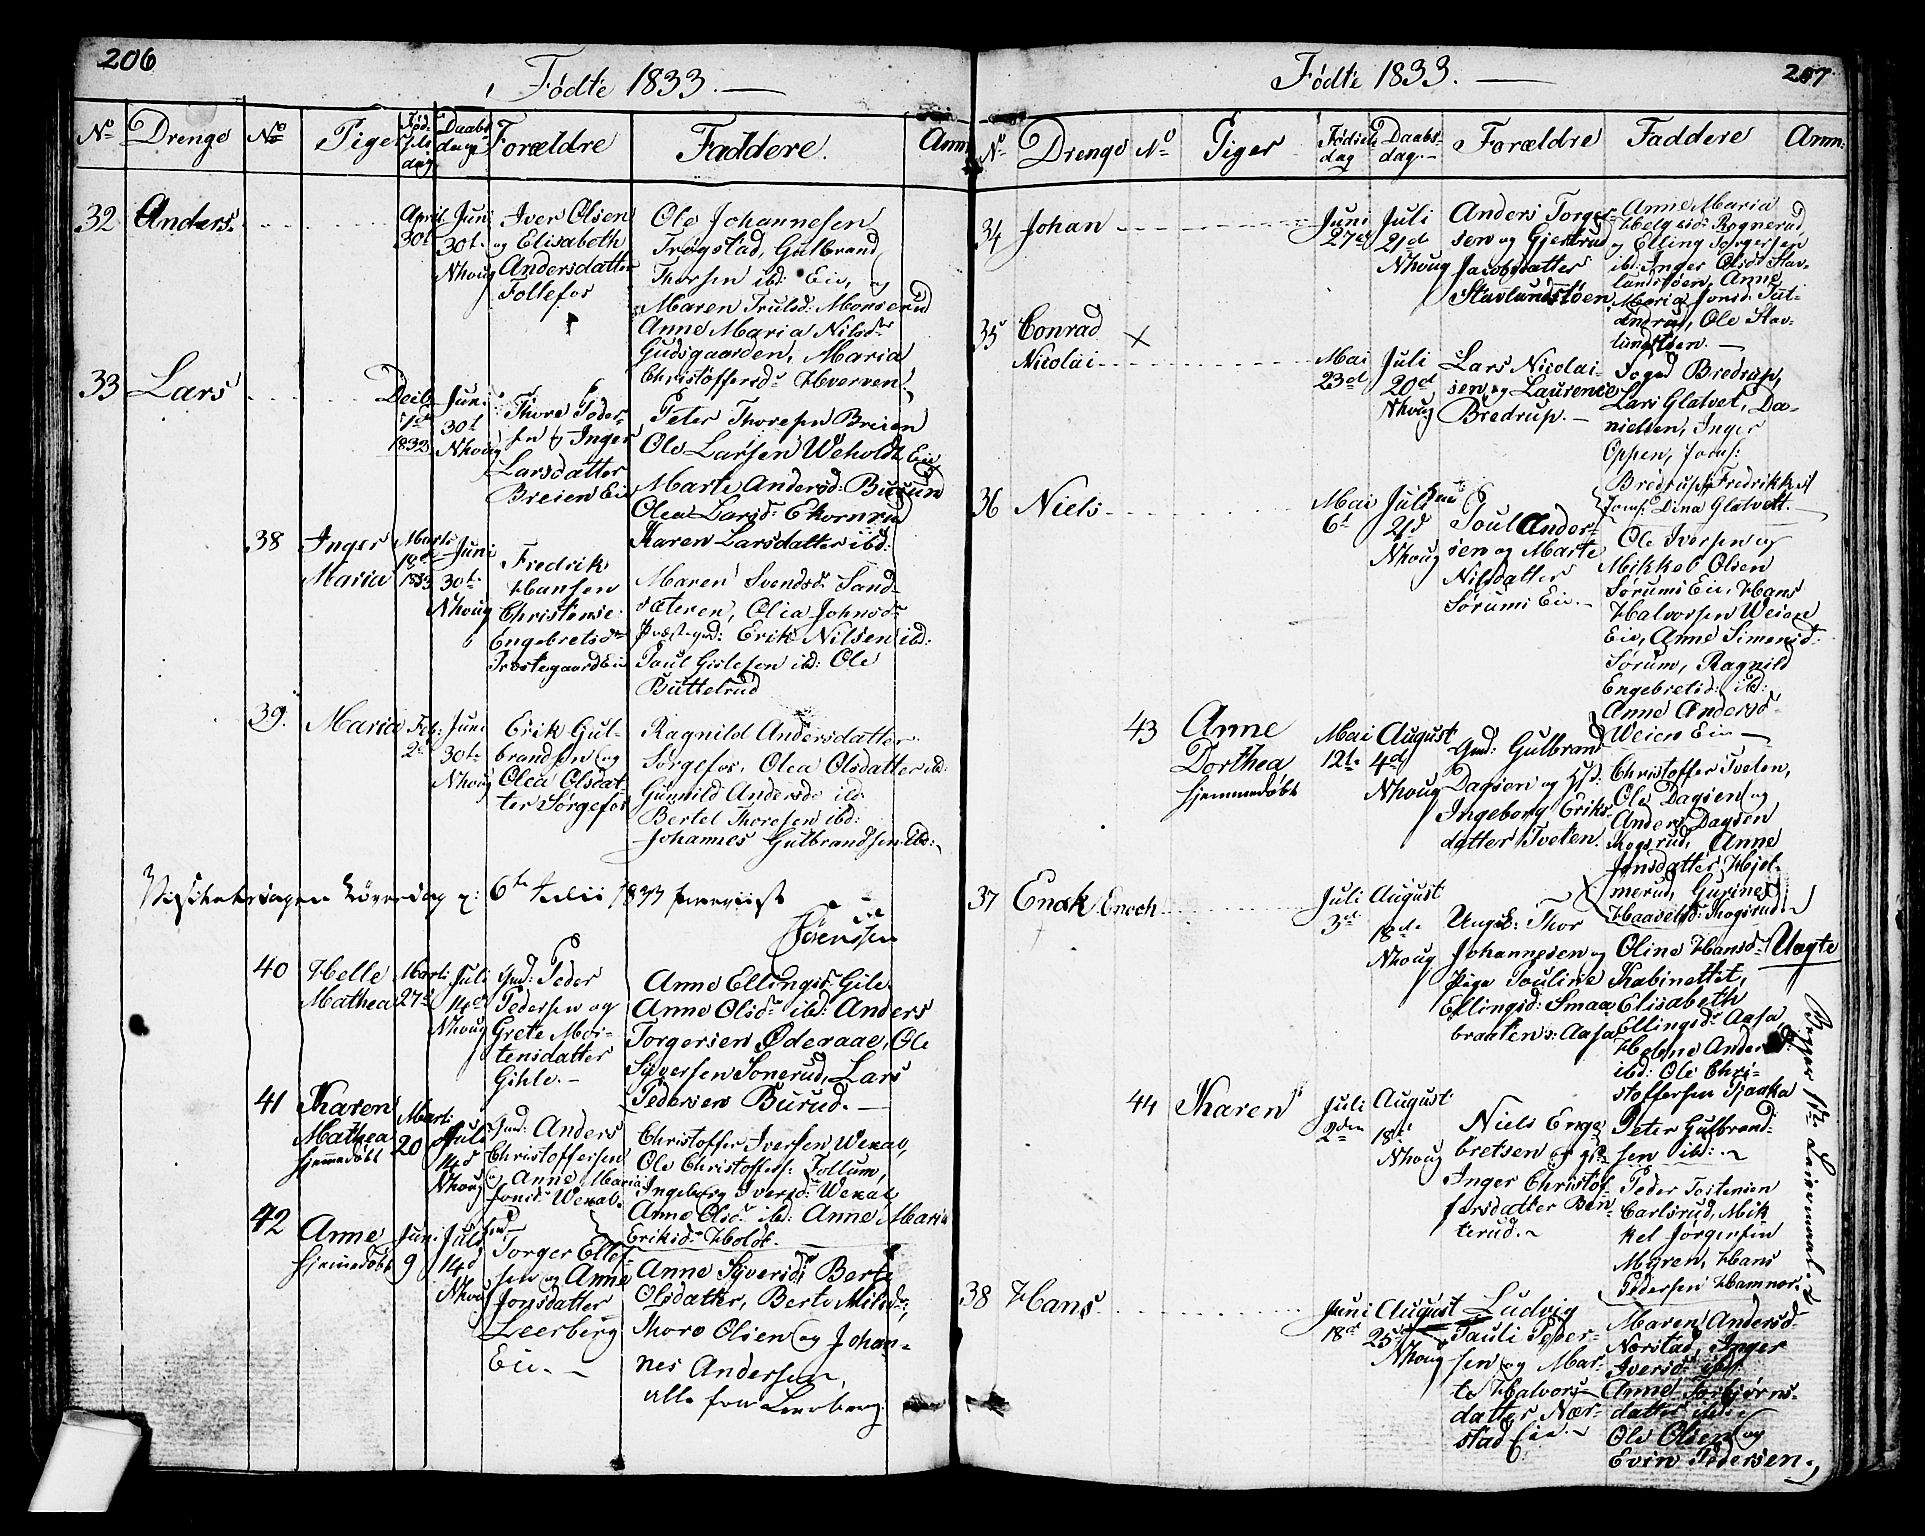 206
Födte 1833.
No Drenge No Piger Födselsdag Daabsdag Forældre Faddere. Anm
32 Anders. April 30t Juni 30t. Nhoug
Iver Olsen
og Elisabeth
Andersdatter
Follefos
Ole Johannesen
Trøgstad, Gulbrand
Thorsen ibd: Eie, og
Maren Trulsd: Monserud
Anne Maria Nilsdr
Gudsgaarden, Maria
Christoffersdr Hverven.
33 Lars Decb 1832 Juni 30t Nhoug
Thore Peder-
sen og Inger
Larsdatter
Breien Eie
Peter Thoresen Breien
Ole Larsen Weholdt Eie
Marte Andersd: Burud
Olea Larsdr Ekornrud
Karen Larsdatter ibd:
38 Inger Maria Marts 18de 1833 Juni 30t. Nhoug
Fredrik
Hansen
Christense
Engebretsdr
Præstegaard Eie
Maren Svendsdr Sand-
sæteren, Olia Johnsdr
Præstegrd: Erik Nilsen ibd:
Paul Gislesen ibd: Ole
Buttelrud
39. Maria Feb: 2d Juni 30t. Nhoug
Erik Gul-
brandsen og
Olea Olsdat-
ter Sørgefos
Ragnild Andersdatter
Sørgefos, Olea Olsdatter ibd:
Gunnild Andersdr ibd:
Bertel Thoresen ibd:
Johannes Gulbrandsen ibd:
6te Julii 1833
40 Helle Mathea Marti 27d Juli 14de Nhoug
Gmd: Peder
Pedersen og
Grete Mor-
tensdatter
Gihle.
Anne Ellingsdr Gile
Anne Olsdr ibd: Anders
Torgersen Øderaae, Ole
Syversen Sonerud, Lars
Pedersen Burud.
41 Karen Mathea hjemmedöbt Marti 20 Juli 14d Nhoug
Gmd: Anders
Christoffersen
og Anne Maria
Jonsdr Wexal.
Christoffer Iversen Wexal,
Ole Christoffers: Follum,
Ingeborg Iversdr Wexal,
Anne Olsdr ibd: Anne Maria
Eriksdr Holdt.
42 Anne hjemmedöbt Juni 9 Juli 14d Nhoug
Torger Ellef-
sen og Anne
Jonsdatter
Leerberg
Eie.
Anne Syversdr Berte
Olsdatter, Berte Nilsdr,
Thore Olsen og Johan-
nes Andersen,
alle fra Leerberg.
207
Födte 1833.
No Drenge No Piger Födselsdag Daabsdag. Forældre Faddere Anm:
34 Johan Juni 27de Juli 21de Nhoug
Anders Torger-
sen og Gjertrud
Jacobsdatter
Stavlundstøen
Anne Maria
Helgesdr Rognerud,
og Elling Torgersen
ibd: Inger Olsdr Stav-
lundstøen, Anne
Maria Jonsd: Tut-
andrud, Ole Stav-
lundstøen.
35 Conrad Nicolai Mai 23de Juli 20d Nhoug
Lars Nicolai-
sen og Laurence
Bredrup.
Foged Bredrup,
Lars Glatvet, Da-
nielsen, Inger
Oppen, Jomf:
Bredrup, Fredrikke
Jomf: Dina Glatvett.
36 Niels Mai 6t Juli 21d Nhoug
Poul Ander-
sen og Marte
Nilsdatter
Sørums Eie.
Ole Iversen og
Mikkel Olsen
Sørums Eie, Hans
Halvorsen Weien
Eie, Anne Simensd:
Sørum, Ragnild
Engebretsd: ibd:
Anne Andersdr
Weiens Eie
43 Anne Dorthea hjemmedøbt Mai 12t. August 4de Nhoug
Gmd: Gulbrand
Dagsen og Hst:
Ingeborg Eriks-
datter Tveten.
Christoffer Tveten,
Ole Dagsen og
Anders Dagsen
Kogsrud, Anne
Jonsdatter Hjel-
merud, Gurine
Haavelsd: Kogsrud
37 Enok Enoch Juli 3d August 18de Nhoug
Ungk: Thor
Johannesen og
Pige Pouline
Ellingsd: Smaa-
braaten v: Aasa
Oline Hansdr
Kabinettet,
Elisabeth
Ellingsdr Aasa,
Helene Andersd:
ibd: Ole Chri-
stoffersen Kjaaka
Uægte
44 Karen Juli 2den August 18de Nhoug
Niels Enge-
bretsen og
Inger Christof-
fersdatter Ben-
terud.
Peter Gulbrand-
sen ibd:
Peder Tostensen
Carlsrud, Mik-
kel Jörgensen
Myren, Hans
Pedersen Hamnor.
38 Hans Juni 18de August 25de Nhoug
Ludvig
Pauli Peder-
sen og Mar-
te Halvors-
datter Nær-
stad Eie.
Maren Andersdr
Nærstad, Inger
Iversdr ibd:
Anne Torbjörns-
datter ibd:
Ole Olsen og
Even Pedersen.